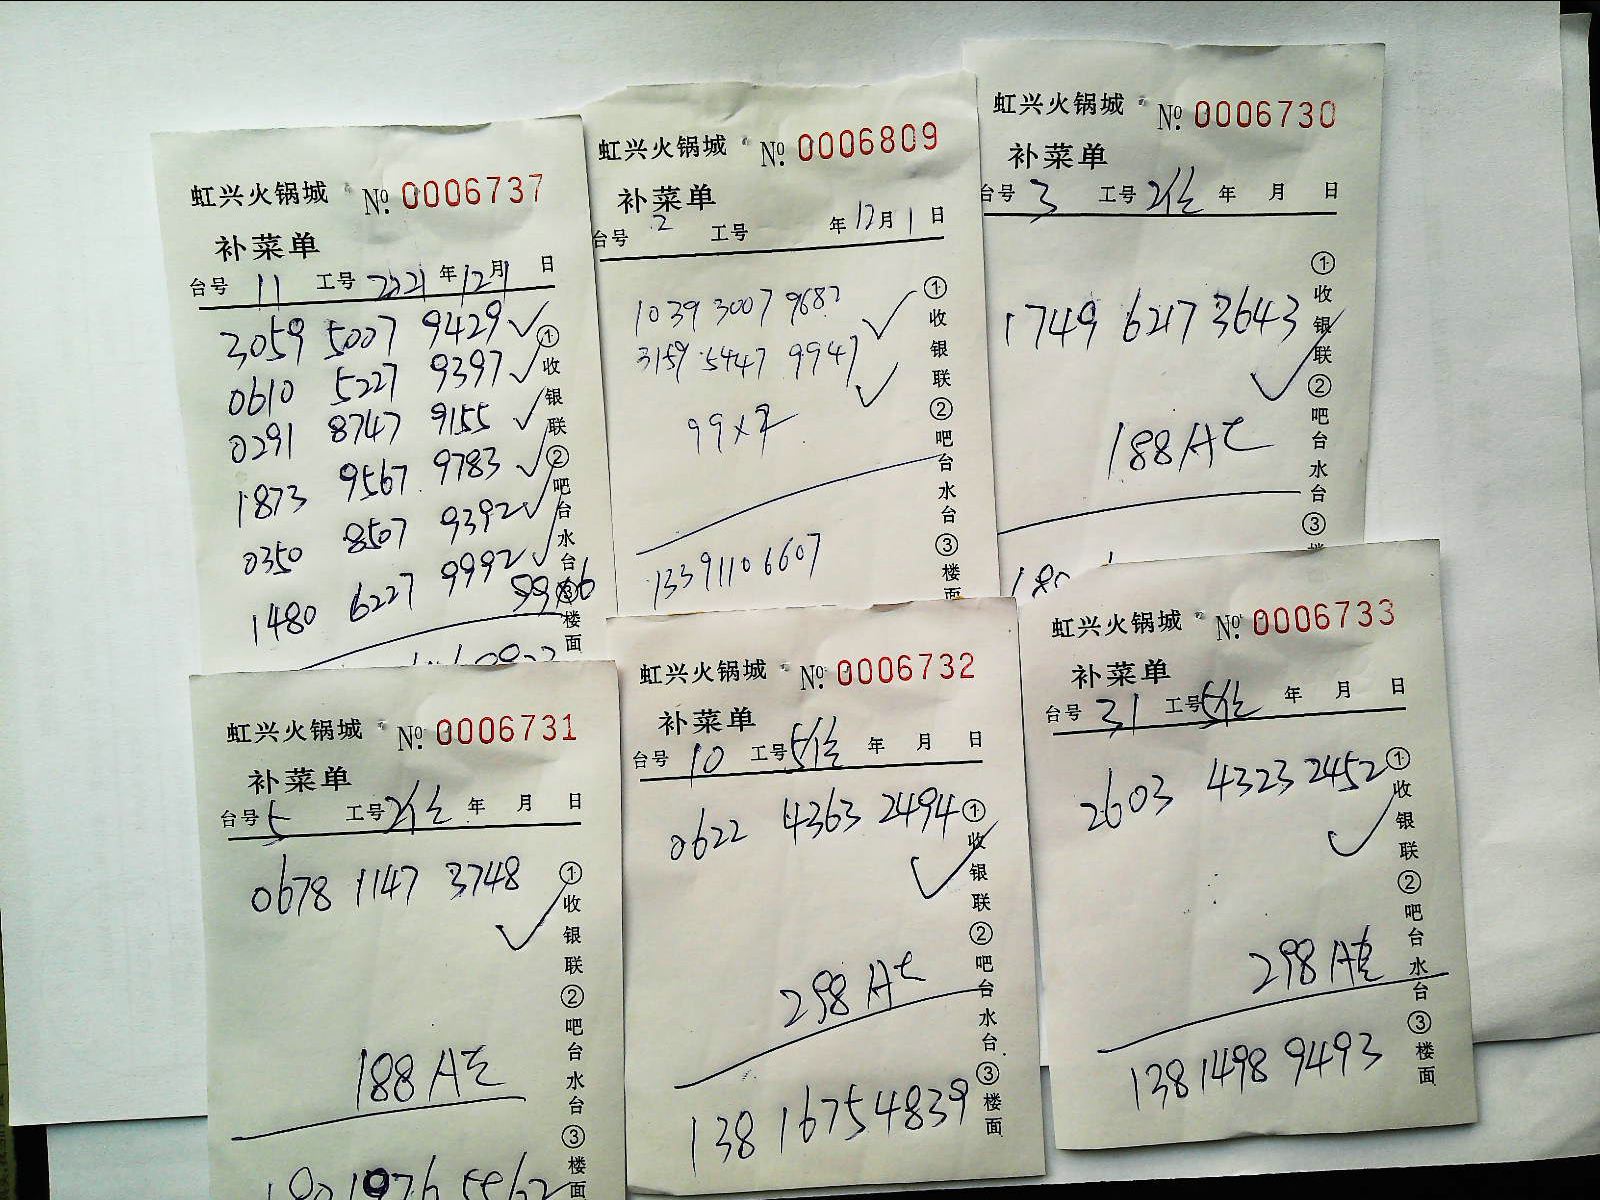 虹兴火锅城 No. 0006737
补菜单
台号 11 工号 2021 年 12 月 1 日
3059 5007 9429 ✓
0610 5227 9397 ✓
0291 8747 9155 ✓
1873 9567 9783 ✓
0350 8507 9392 ✓
1480 6227 9992 ✓
①收银联②吧台水台③楼面
虹兴火锅城 No. 0006809
补菜单
台号 2 工号 年 12 月 1 日
1039 3007 9682 ✓
3159 5447 9947 ✓
99×2
13391106607
①收银联②吧台水台③楼面
虹兴火锅城 No. 0006730
补菜单
台号 3 工号 2位 年 月 日
1749 6217 3643 ✓
188A
①收银联②吧台水台③楼
虹兴火锅城 No. 0006731
补菜单
台号 5 工号 2位 年 月 日
0678 1147 3748 ✓
188A
①收银联②吧台水台③楼面
虹兴火锅城 No. 0006732
补菜单
台号 10 工号 5位 年 月 日
0622 4363 2494 ✓
298A
138 1675 4839
①收银联②吧台水台③楼面
虹兴火锅城 No. 0006733
补菜单
台号 31 工号 5位 年 月 日
2603 4323 2452 ✓
298A
138 1498 9493
①收银联②吧台水台③楼面